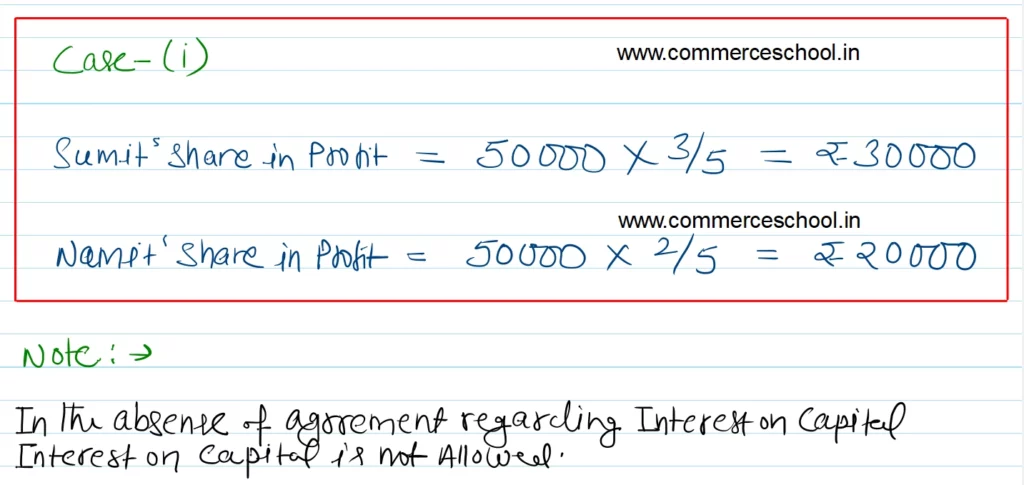 Case-(i)
www.commerceschool.in
Sumit's share in Profit = 50000 × 3/5 = ₹30000
www.commerceschool.in
Namit' share in Profit = 50000 × 2/5 = ₹20000
Note: →
In the absence of agreement regarding Interest on Capital
Interest on capital is not Allowed.